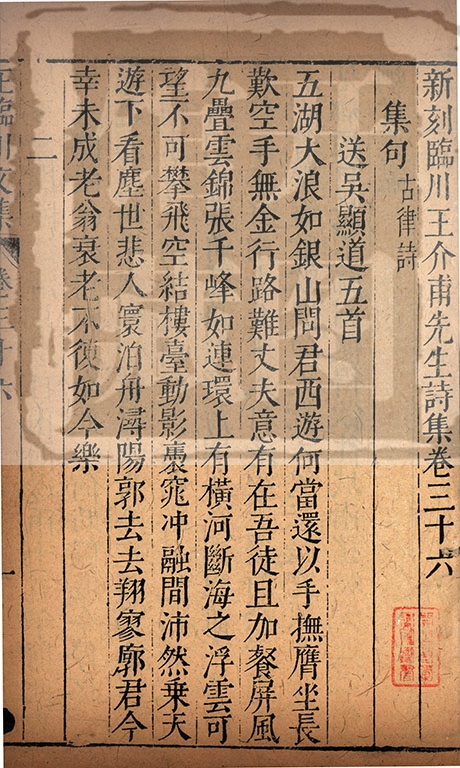 新刻臨川王介甫先生詩集卷三十六
集句 古律詩
送吳顯道五首
五湖大浪如銀山問君西遊何當還以手撫膺坐長
歎空手無金行路難丈夫意有在吾徒且加餐屏風
九疊雲錦張千峰如連環上有橫河斷海之浮雲可
望不可攀飛空結樓臺動影裊窕沖融間沛然乘天
遊下看塵世悲人寰泊舟潯陽郭去去翔寥廓君今
幸未成老翁衰老不復如今樂
二
王臨川文集 卷三十六
一